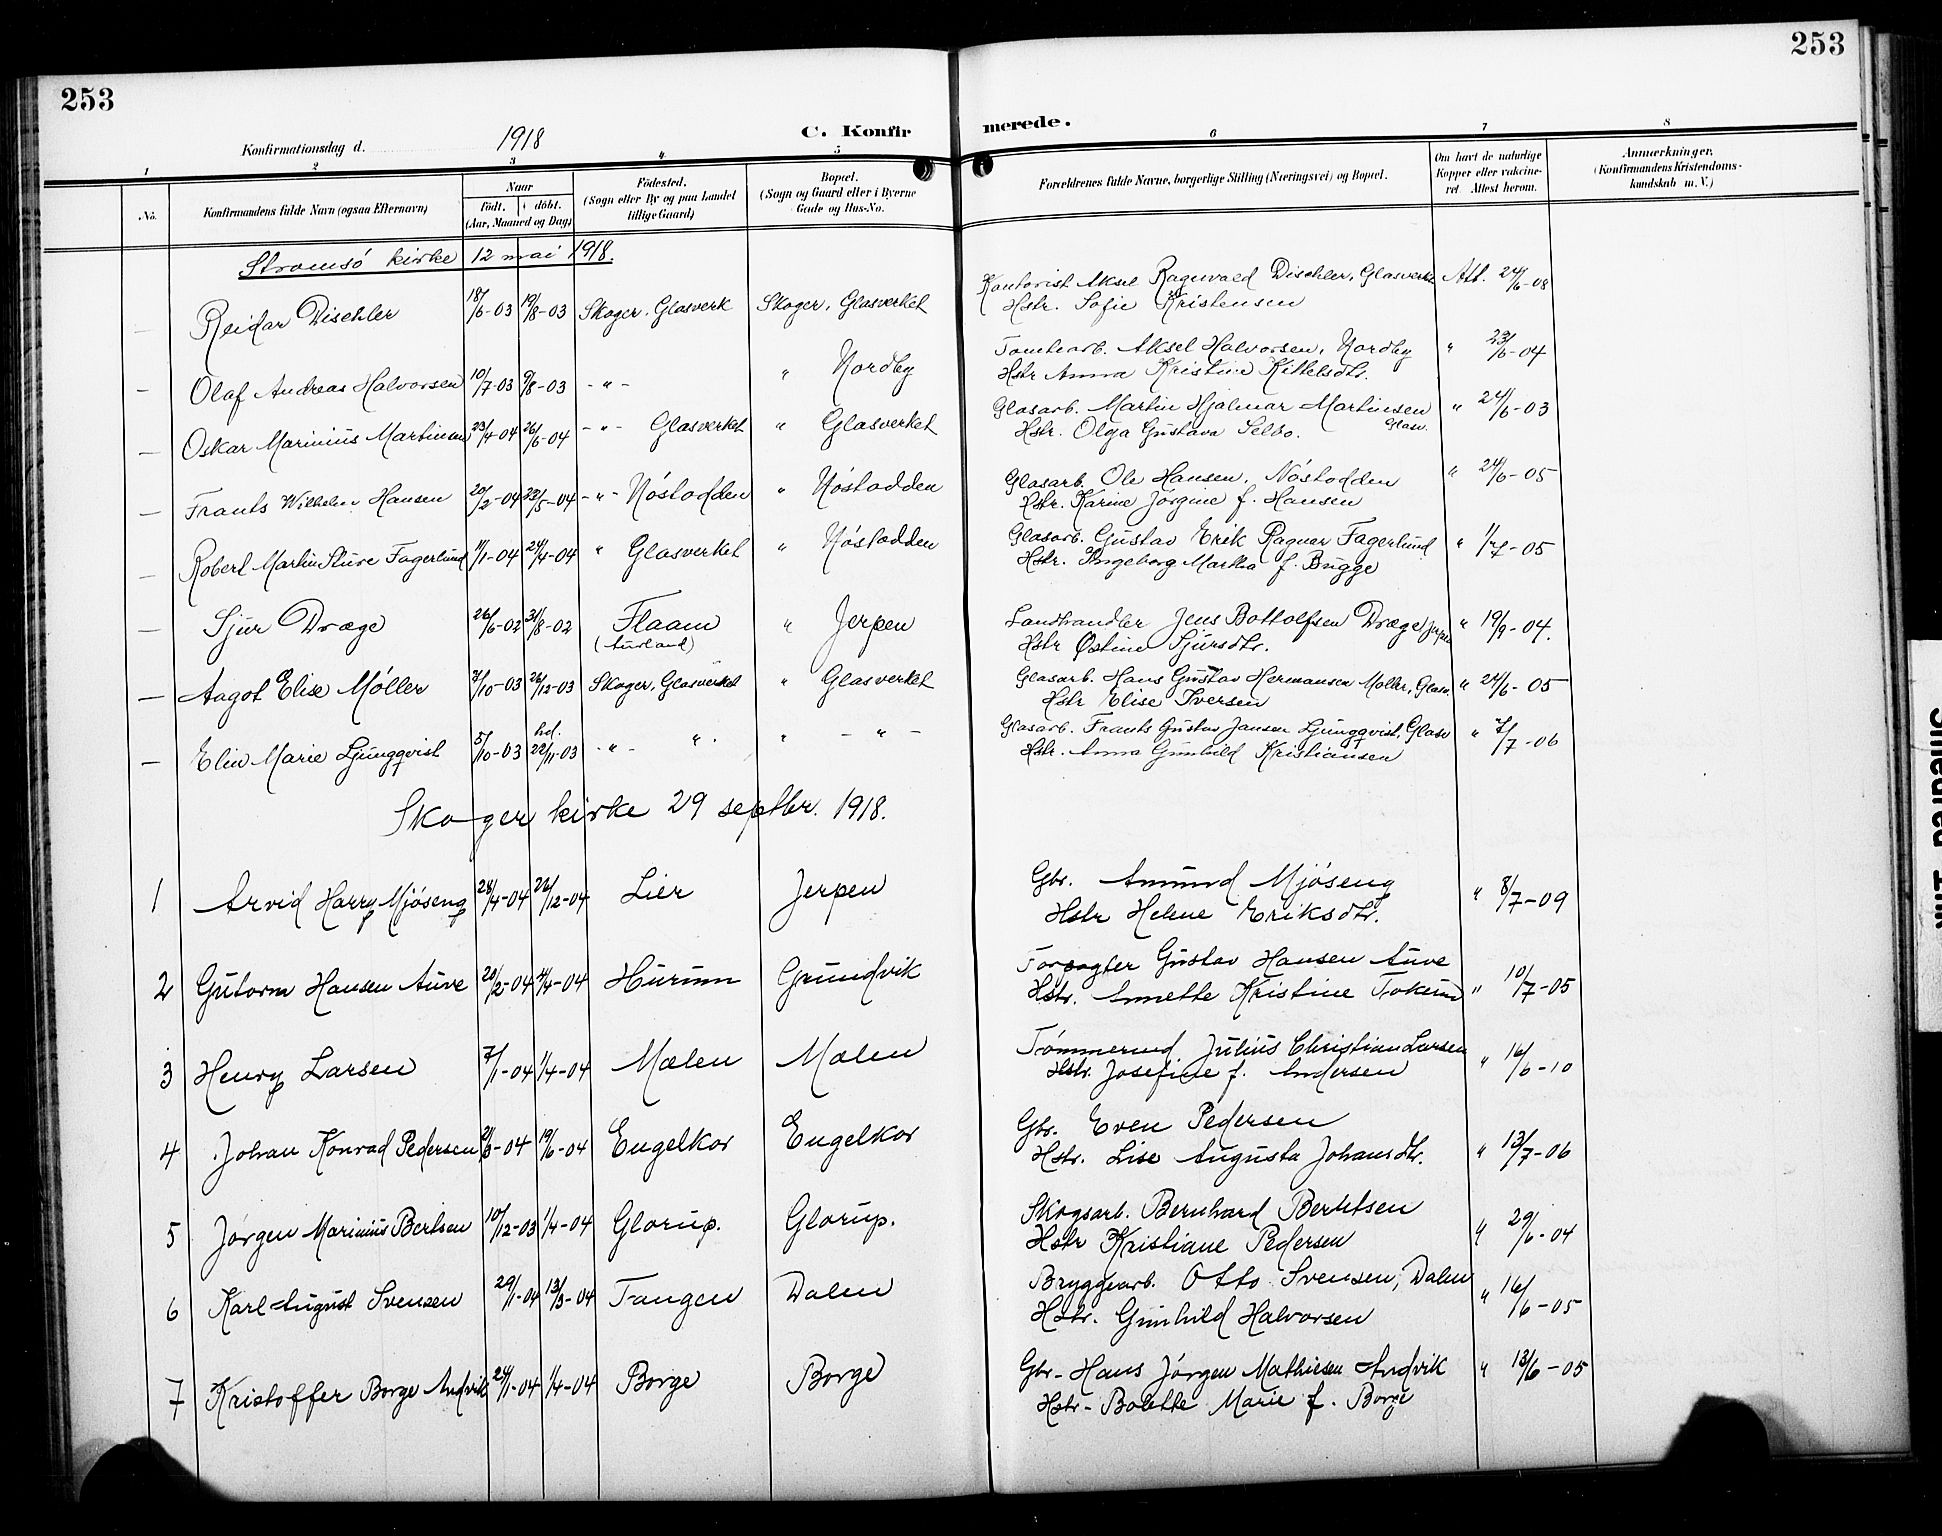 253
253
Konfirmationsdag d. 1918
C. Konfirmerede.
1 2 3 4 5 6 7 8
No.
Konfirmandens fulde Navn (ogsaa Efternavn)
Naar
Födt. döbt.
(Aar, Maaned og Dag)
Födested.
(Sogn eller By og paa Landet
tillige Gaard)
Bopæl.
(Sogn og Gaard eller i Byerne
Gade og Hus-No.
Forældrenes fulde Navne, borgerlige Stilling (Næringsvei) og Bopæl.
Om havt de naturlige
Kopper eller vaccine-
ret Attest herom.
Anmærkninger.
(Konfirmandens Kristendoms-
kundskab m. V.)
Stromsó kirke 12 mai 1918.
— Reidar Dischler 18/6-03 19/8-03 Skoger, Glasverk Skoger, Glasverket Kontorist Aksel Ragnvald Dischler, Glasverket Att. 24/6-08
Hstr. Sofie Kristensen
— Olaf Andreas Halvorsen 10/7-03 9/8-03 -"- " Nordby Tomtearb. Aksel Halvorsen, Nordby " 23/6-04
Hstr Anna Kristine Kittelsdtr.
— Oskar Marinius Martinsen 23/4-04 26/6-04 -"- Glasverket " Glasverket Glasarb. Martin Hjalmar Martinsen " 24/6-03
Hstr. Olga Gustava Selbo. Glasv.
— Frants Wilhelm Hansen 20/2-04 22/5-04 -"- Nóstodden " Nóstodden Glasarb. Ole Hansen, Nóstodden " 24/6-05
Hstr. Karine Jórgine f. Hansen
— Robert Martin Sture Fagerlund 11/1-04 24/4-04 " Glasverket " Nóstodden Glasarb. Gustav Erik Ragnar Fagerlund " 1/7-05
Hstr. Ingeborg Martha f. Bugge
— Sjur Dræge 26/6-02 31/8-02 Flaam " Jerpen Landhandler Jens Bottolfsen Dræge, Jerpen " 19/9-04.
(Aurland) Hstr Østine Sjursdtr.
— Aagot Elise Móller 7/10-03 26/12-03 Skoger, Glasverket " Glasverket Glasarb. Hans Gustav Hermansen Moller, Glasv. " 24/6-05
Hstr Elise Iversen
— Elin Marie Ljungqvist 5/10-03 hd. 22/11-03 -"- " " -"- Glasarb. Frants Gustav Jansen Ljungqvist, Glasv " 7/7-06
Hstr. Anna Gunhild Kristiansen
Skoger kirke 29 septbr. 1918.
1 Arvid Harry Mjóseng 28/4-04 26/12-04 Lier Jerpen Gbr. Amund Mjóseng " 8/7-09
Hstr Helene Eriksdtr.
2 Gutorm Hansen Auve 20/2-04 4/4-04 Hurum Grundvik Forpagter Gustav Hansen Auve " 10/7-05
Hstr. Annette Kristine
3 Henry Larsen 7/1-04 1/4-04 Mælen Mælen Tómmermd. Julius Christian Larsen " 16/6-10
Hstr. Josefine f. Andersen
4 Johan Konrad Pedersen 21/3-04 19/6-04 Engelkor Engelkor Gbr. Even Pedersen " 13/7-06
Hstr. Lise Augusta Johansdtr.
5 Jórgen Marinius Bertsen 10/12-03 1/4-04 Glorup. Glorup. Skogsarb. Bernhard Berntsen " 29/6-04
Hstr Kristiane Pedersen
6 Karl August Svensen 29/1-04 13/3-04 Tangen Dalen Bryggearb. Otto Svensen, Dalen " 16/6-05
Hstr. Gunhild Halvorsen
7 Kristoffer Borge Andvik 24/1-04 1/4-04 Borge Borge Gbr- Hans Jórgen Mathiesen Andvik " 13/6-05
Hstr- Bolette Marie f. Borge